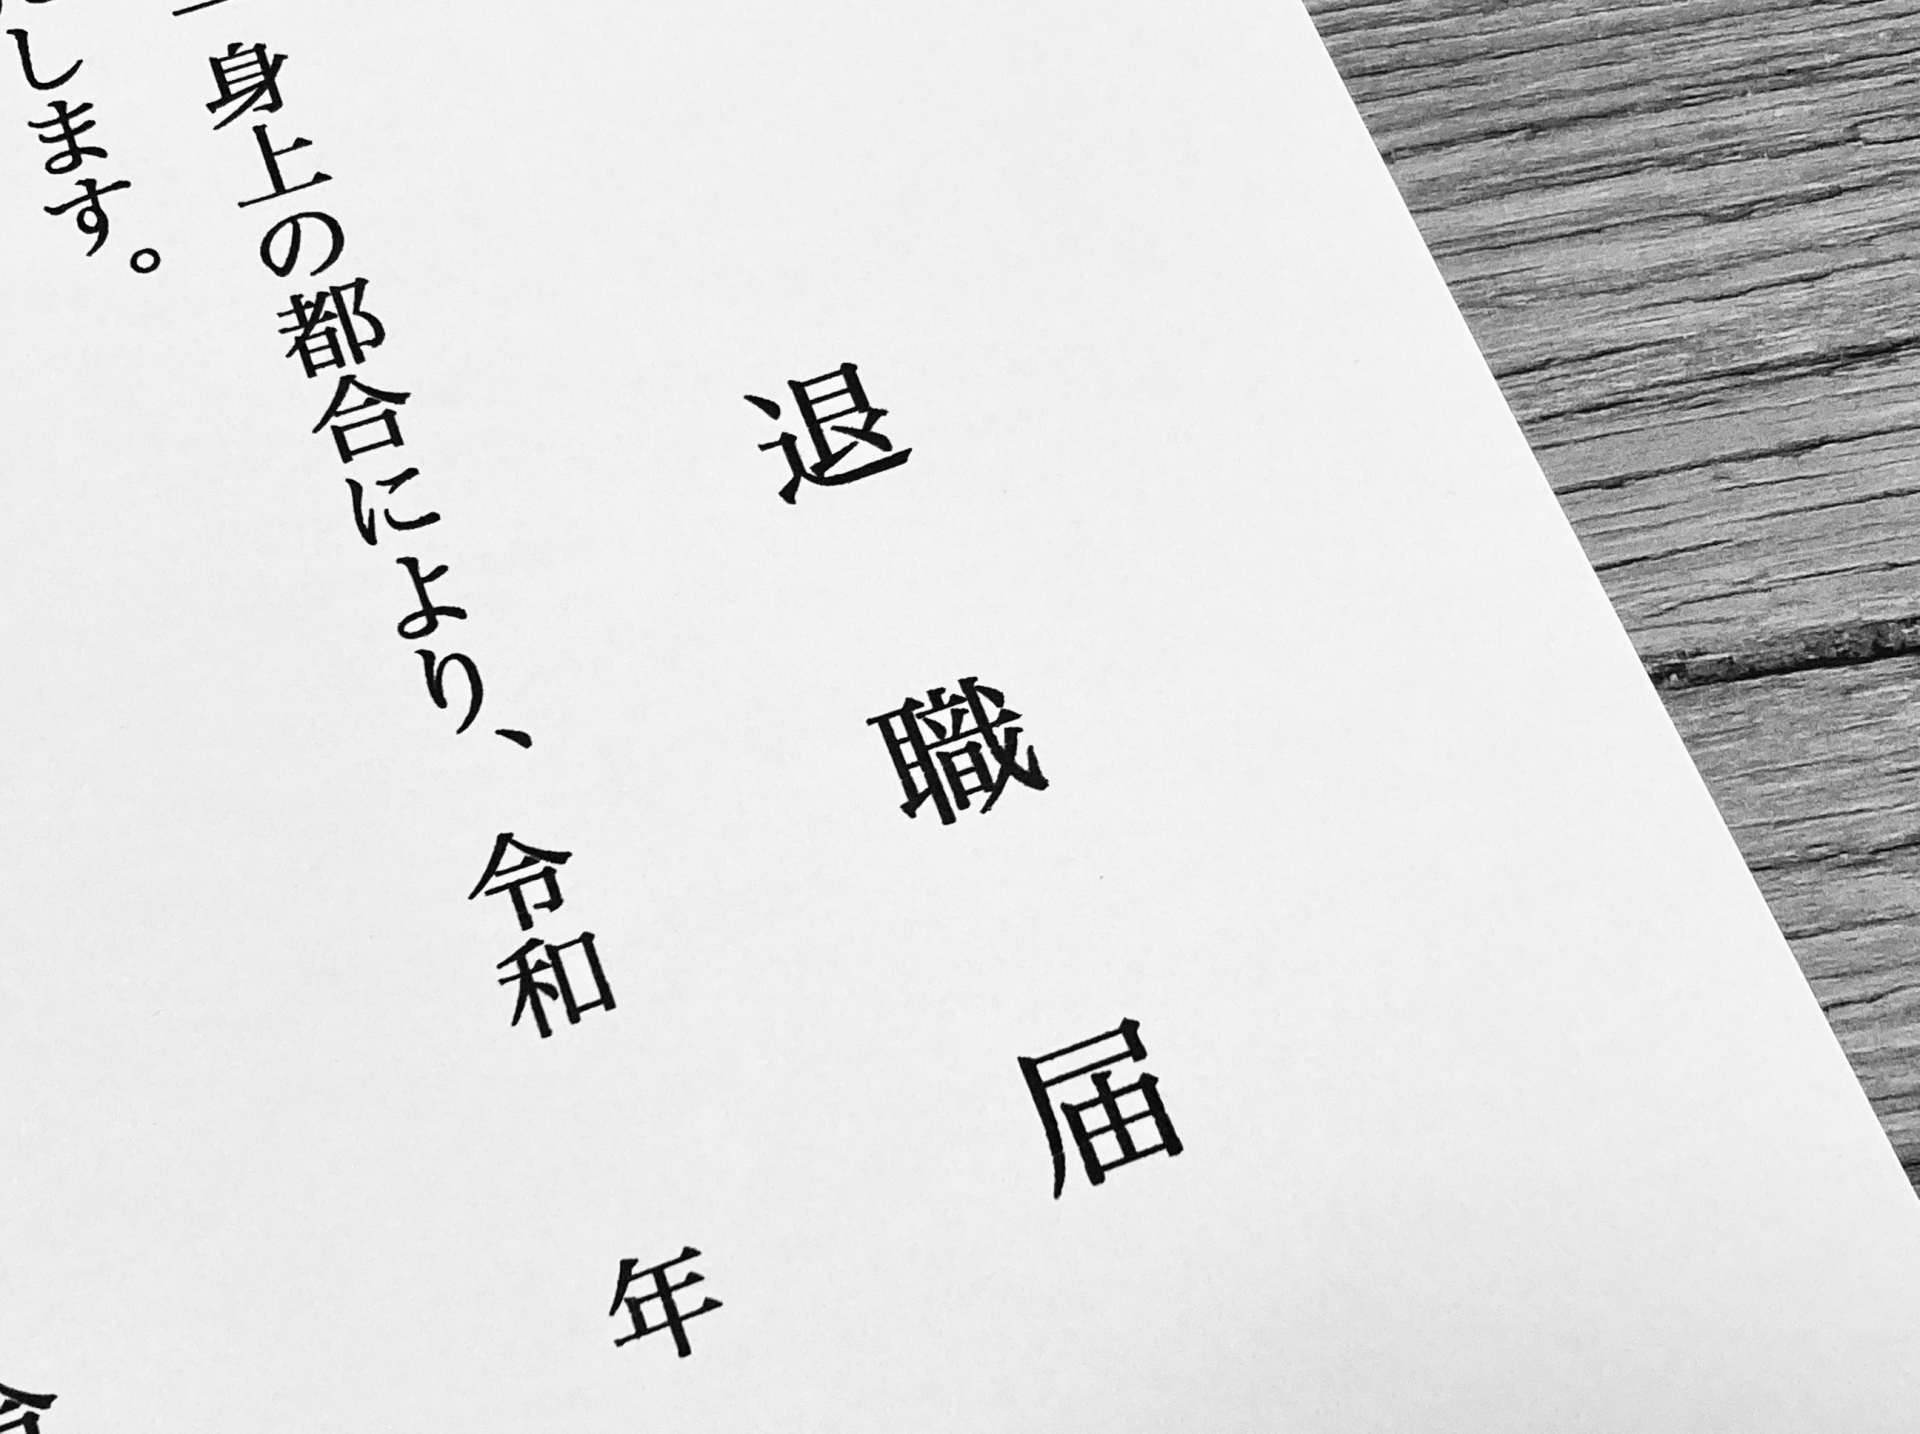 退職届
一身上の都合により、令和 年
たします。